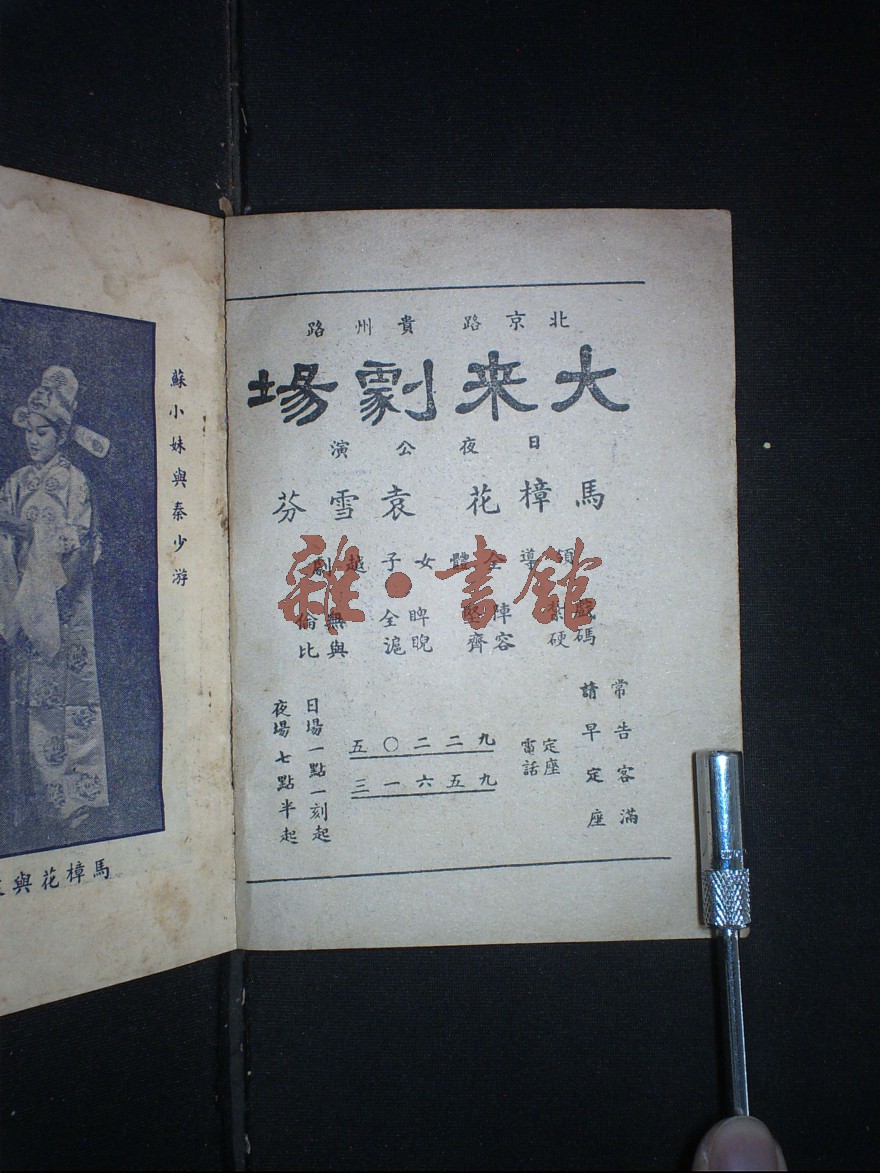 北京路貴州路
大来劇場
日夜公演
馬樟花 袁雪芬
領導全體女子越劇
戲碼紮硬 陣容堅齊 睥睨全滬 無與倫比
常告客滿
請早定座
定座電話
九二二〇五
九五六一三
日場一點一刻起
夜場七點半起
蘇小妹與秦少游
馬樟花與
雜·書館